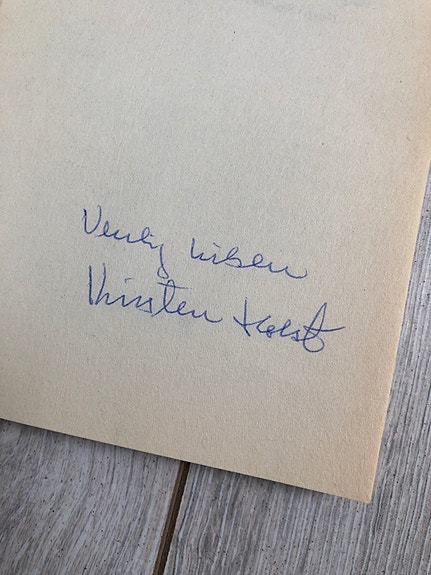 Venlig hilsen
Kirsten Holst